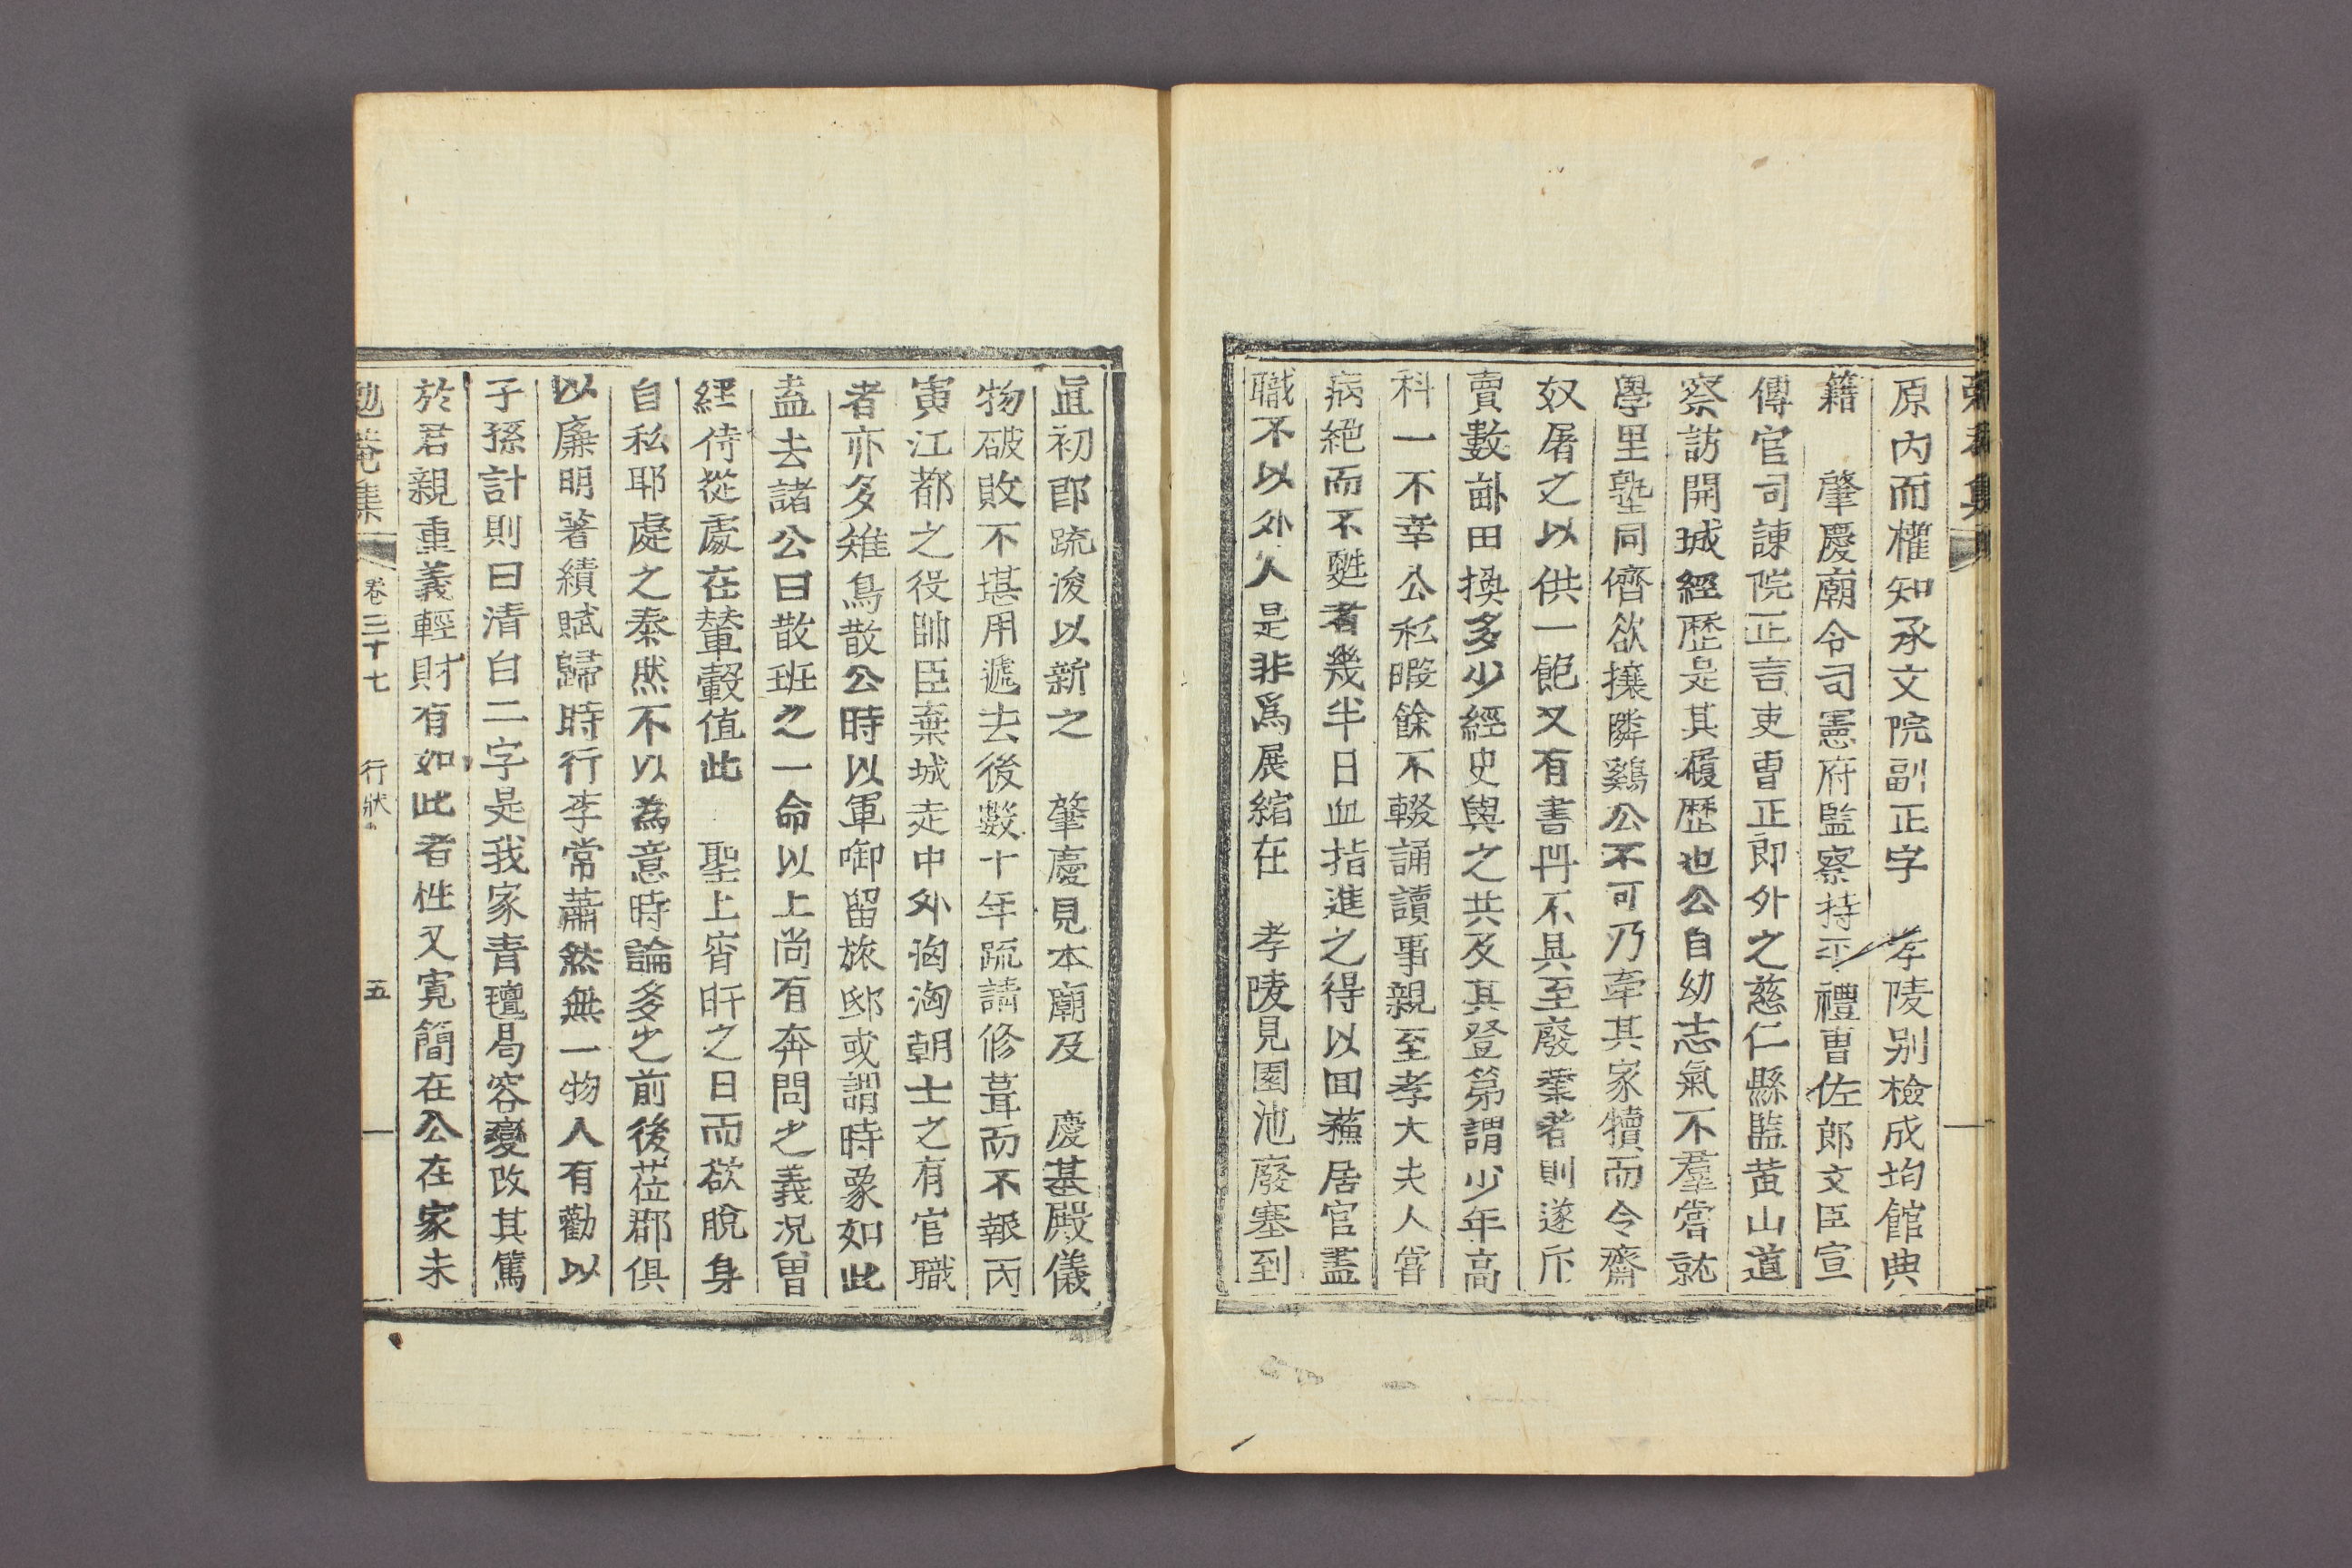 原內而權知承文院副正字　孝陵別檢成均館典
籍　肇慶廟令司憲府監察持平禮曹佐郎文臣宣
傳官司諫院正言吏曹正郎外之慈仁縣監黃山道
察訪開城經歷是其履歷也公自幼志氣不羣嘗就
學里塾同儕欲攘隣鷄公不可乃牽其家犢而令齋
奴屠之以供一飽又有書冊不具至廢業者則遂斥
賣數畝田換多少經史與之共及其登第謂少年高
科一不幸公私暇餘不輟誦讀事親至孝大夫人嘗
病絕而不甦者幾半日血指進之得以回蘇居官盡
職不以外人是非爲展縮在　孝陵見園池廢塞到
眞初郎疏浚以新之　肇慶見本廟及　慶基殿儀
物破敗不堪用遞去後數十年疏請修葺而不報丙
寅江都之役帥臣棄城走中外洶洶朝士之有官職
者亦多雉鳥散公時以軍啣留旅邸或謂時象如此
盍去諸公曰散班之一命以上尚有奔問之義况曾
經侍從處在輦轂值此　聖上宵旰之日而欲脫身
自私耶處之泰然不以為意時論多之前後莅郡俱
以廉明著績賦歸時行李常蕭然無一物人有勸以
子孫計則曰清白二字是我家青氊曷容變改其篤
於君親重義輕財有如此者性又寬簡在公在家未
勉菴集　卷三十七　行狀　五